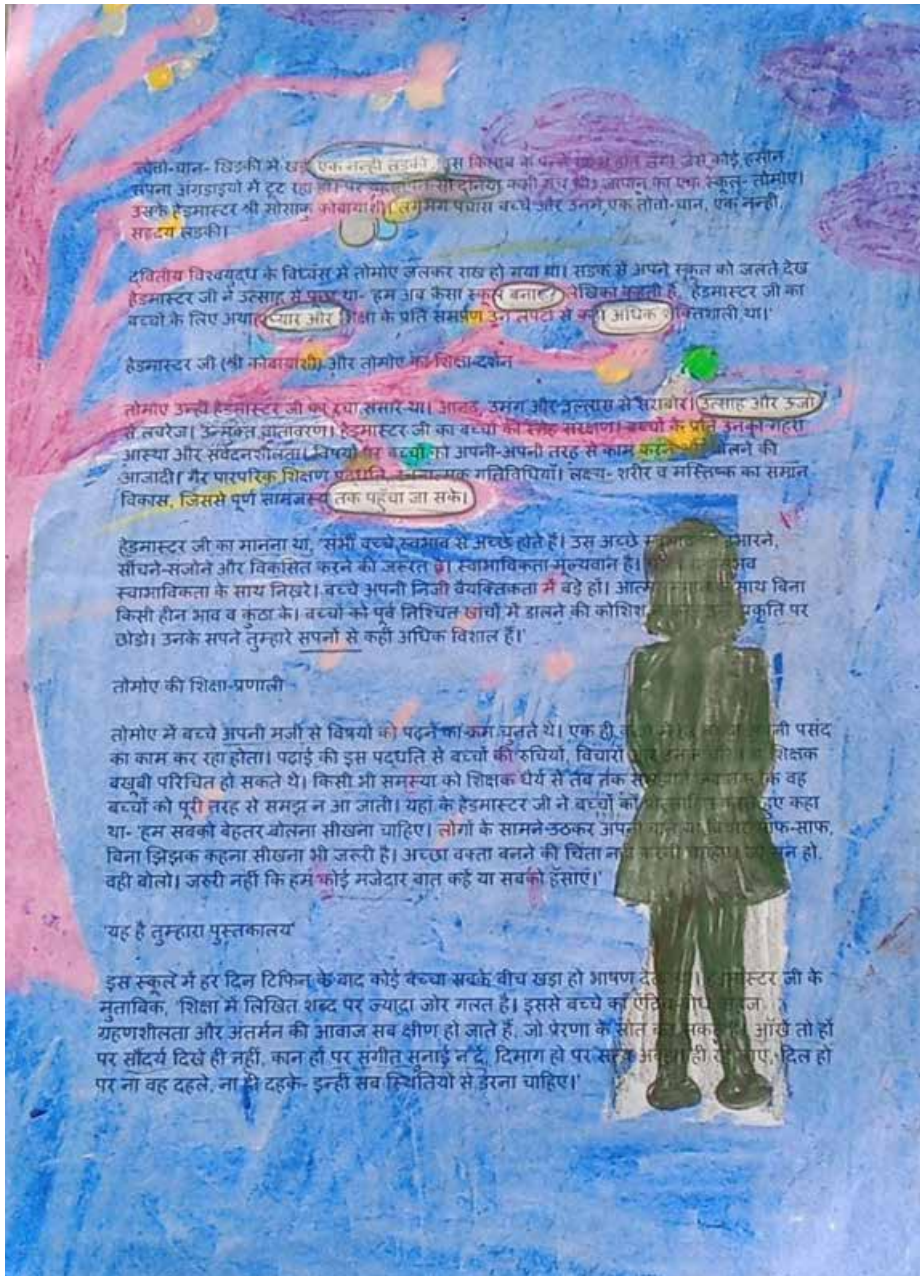 'तोतो-चान- खिड़की में खड़ी एक नन्ही लड़की' इस किताब के पन्ने जैसे कोई हसीन
सपना अंगड़ाइयों में टूट रहा हो। पर दुनिया कभी सच थी। जापान का एक स्कूल- तोमोए।
उसके हेडमास्टर श्री सोसाकु कोबायाशी। लगभग पचास बच्चे और उनमें एक तोतो-चान, एक नन्ही,
सहृदय लड़की।
द्वितीय विश्वयुद्ध के विध्वंस में तोमोए जलकर राख हो गया था। सड़क से अपने स्कूल को जलते देख
हेडमास्टर जी ने उत्साह से पूछा था- 'हम अब कैसा स्कूल बनाएं?' लेखिका कहती हैं, 'हेडमास्टर जी का
बच्चों के लिए अथाह प्यार और शिक्षा के प्रति समर्पण उन लपटों से कहीं अधिक शक्तिशाली था।'
हेडमास्टर जी (श्री कोबायाशी) और तोमोए का शिक्षा-दर्शन
तोमोए उन्हीं हेडमास्टर जी का रचा संसार था। आनंद, उमंग और उल्लास से सराबोर। उत्साह और ऊर्जा
से लबरेज। उन्मुक्त वातावरण। हेडमास्टर जी का बच्चों को स्नेह संरक्षण। बच्चों के प्रति उनकी गहरी
आस्था और संवेदनशीलता। विषयों पर बच्चों को अपनी-अपनी तरह से काम करने और बोलने की
आजादी। गैर पारंपरिक शिक्षण पद्धति, रचनात्मक गतिविधियाँ। लक्ष्य- शरीर व मस्तिष्क का समान
विकास, जिससे पूर्ण सामंजस्य तक पहुँचा जा सके।
हेडमास्टर जी का मानना था, 'सभी बच्चे स्वभाव से अच्छे होते हैं। उस अच्छे उभारने,
सींचने-संजोने और विकसित करने की जरूरत है। स्वाभाविकता मूल्यवान है।
स्वाभाविकता के साथ निखरे। बच्चे अपनी निजी वैयक्तिकता में बड़े हों। साथ बिना
किसी हीन भाव व कुंठा के। बच्चों को पूर्व निश्चित खांचों में डालने की कोशिश प्रकृति पर
छोड़ो। उनके सपने तुम्हारे सपनों से कहीं अधिक विशाल हैं।'
तोमोए की शिक्षा-प्रणाली
तोमोए में बच्चे अपनी मर्जी से विषयों को पढ़ने का क्रम चुनते थे। एक ही पसंद
का काम कर रहा होता। पढ़ाई की इस पद्धति से बच्चों की रुचियों, विचारों शिक्षक
बखूबी परिचित हो सकते थे। किसी भी समस्या को शिक्षक धैर्य से तब तक कि वह
बच्चों को पूरी तरह से समझ न आ जाती। यहां के हेडमास्टर जी ने बच्चों को हुए कहा
था- 'हम सबको बेहतर बोलना सीखना चाहिए। लोगों के सामने उठकर अपनी साफ-साफ,
बिना झिझक कहना सीखना भी जरूरी है। अच्छा वक्ता बनने की चिंता नहीं करनी चाहिए। मन हो,
वही बोलो। जरूरी नहीं कि हम कोई मजेदार बात कहें या सबको हँसाएं।'
'यह है तुम्हारा पुस्तकालय'
इस स्कूल में हर दिन टिफिन के बाद कोई बच्चा सबके बीच खड़ा हो भाषण देता था। हेडमास्टर जी के
मुताबिक, 'शिक्षा में लिखित शब्द पर ज्यादा जोर गलत है। इससे बच्चे का
ग्रहणशीलता और अंतर्मन की आवाज सब क्षीण हो जाते हैं, जो प्रेरणा के स्रोत आंखें तो हों
पर सौंदर्य दिखे ही नहीं, कान हों पर संगीत सुनाई न दे, दिमाग हो पर दिल हो
पर ना वह दहले, ना ही दहके- इन्हीं सब स्थितियों से डरना चाहिए।'